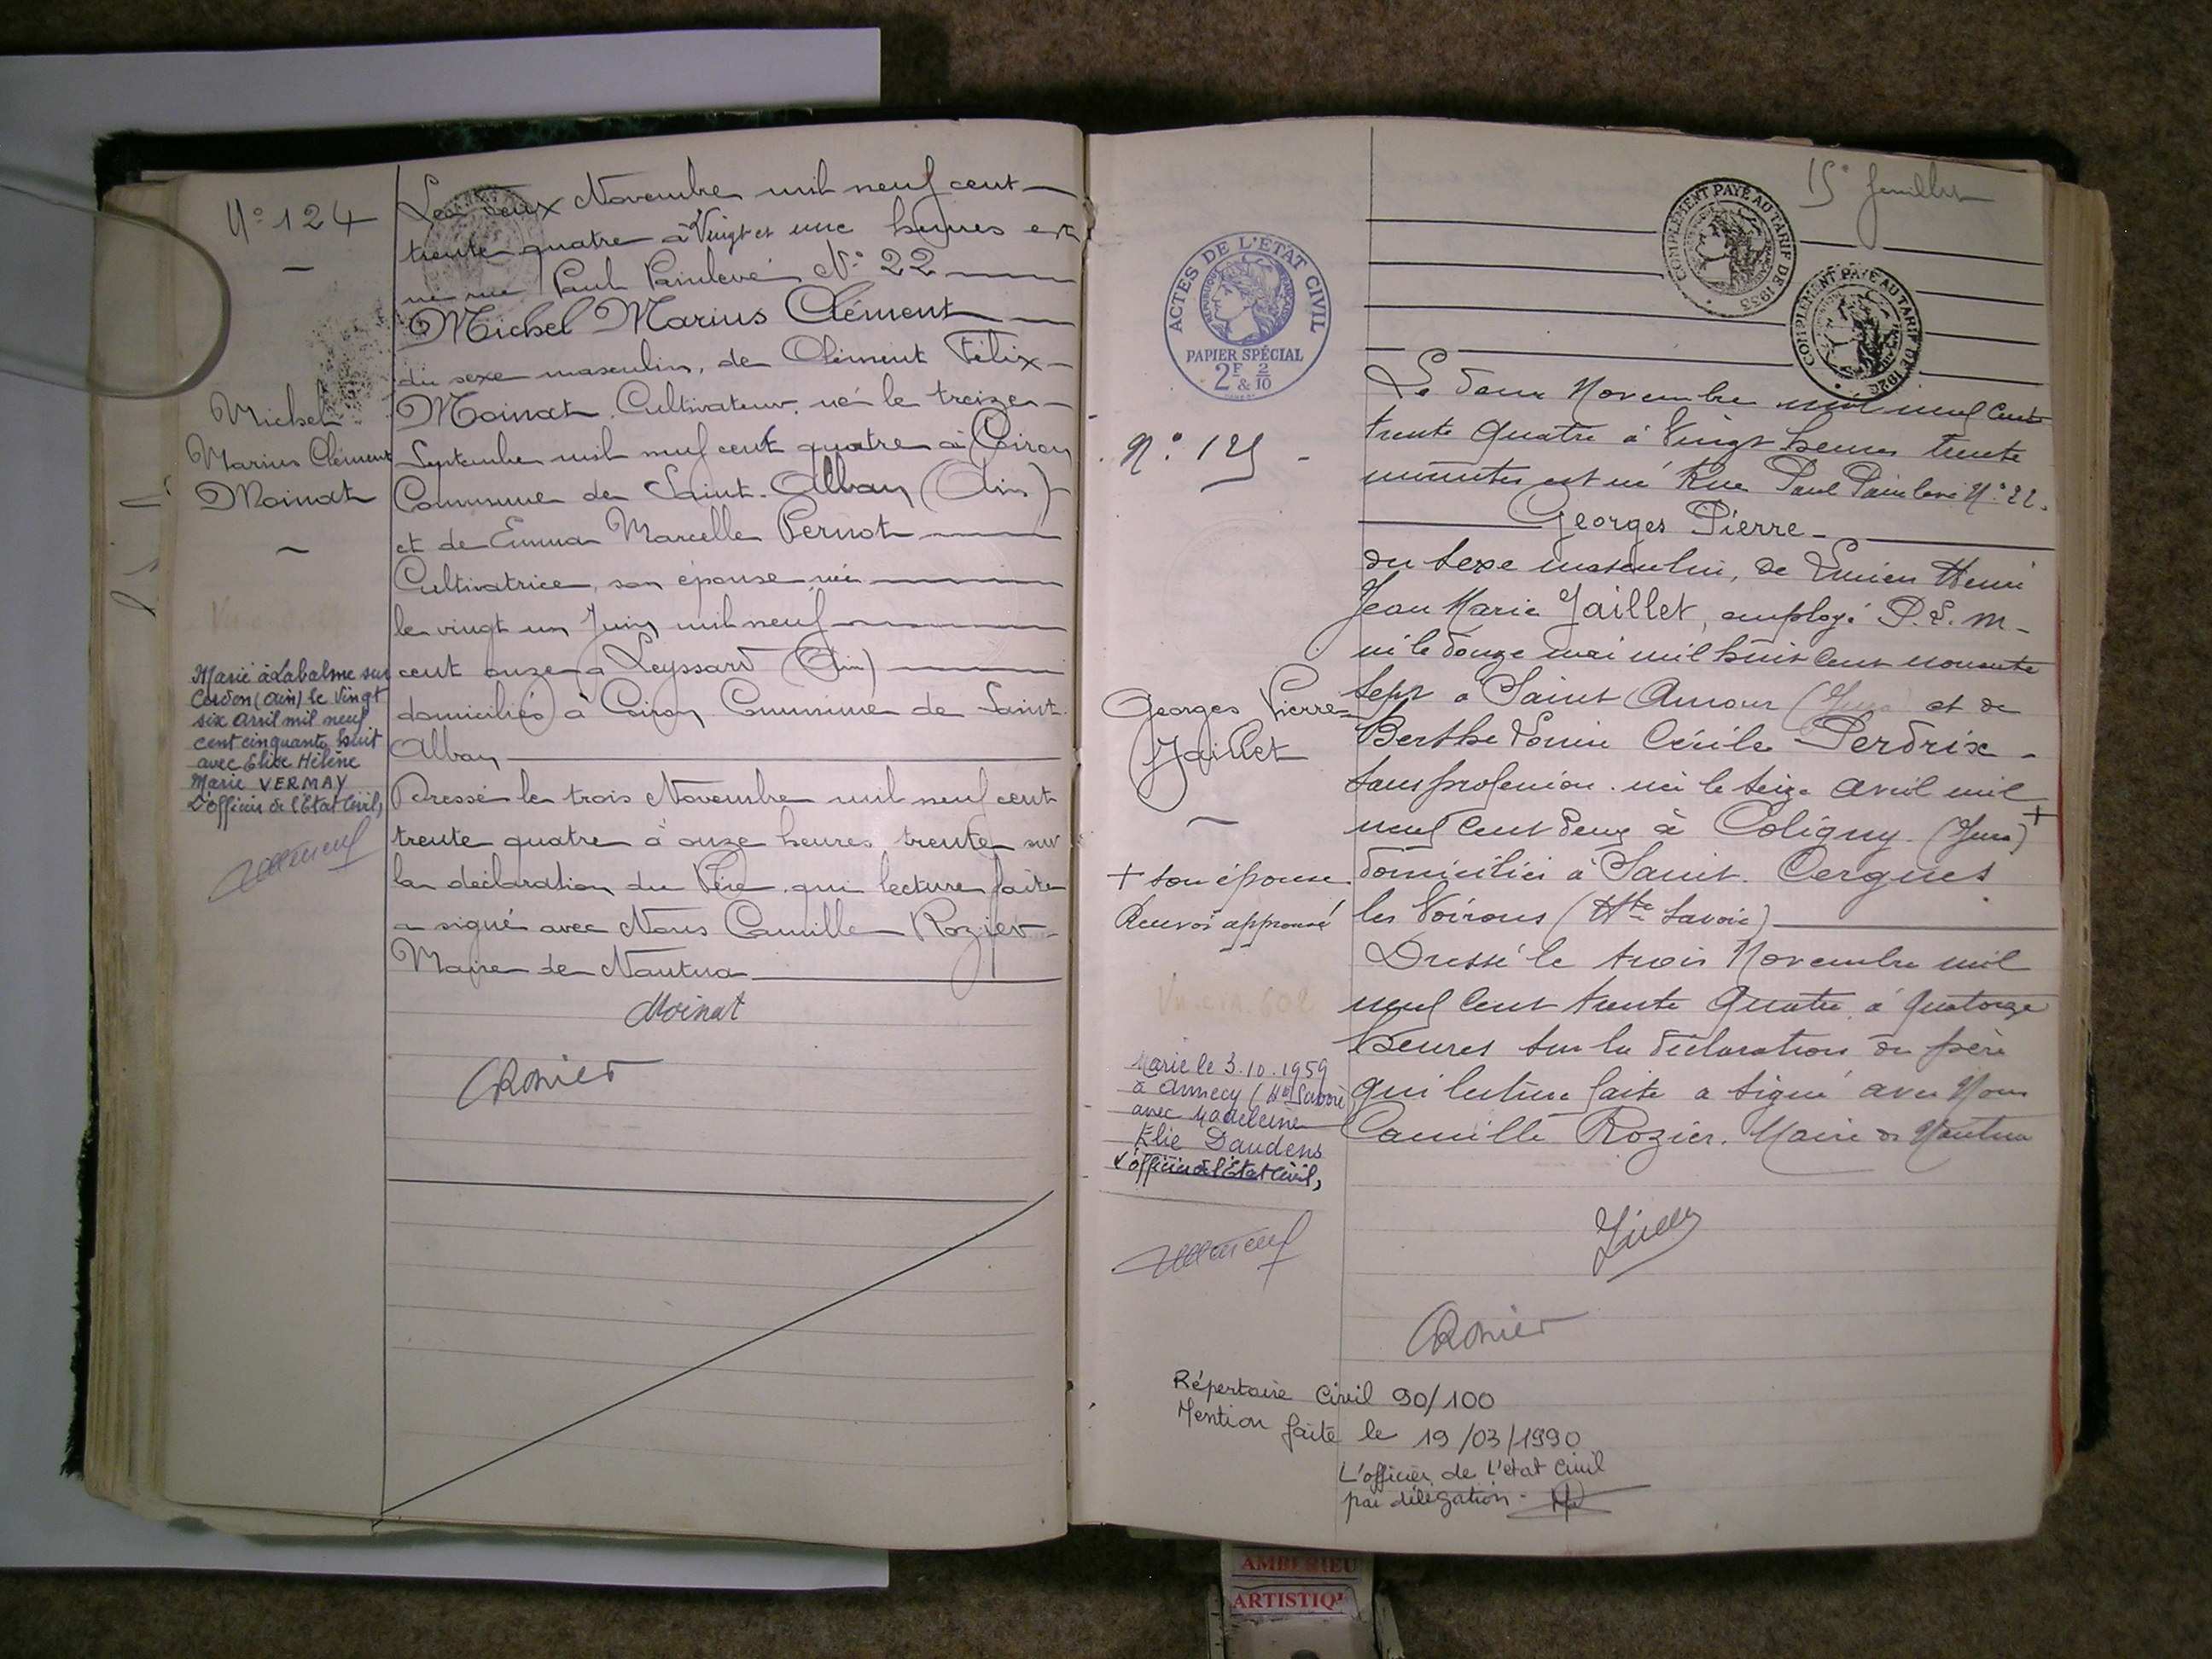 N° 124
Michel
Marius Clément
Moinat
Marié à Labalme sur
Cerdon (Ain) le Vingt
six Avril mil neuf
cent cinquante huit
avec Elise Hélène
Marie VERMAY
L'Officier de l'Etat Civil,
Le deux Novembre mil neuf cent
trente quatre à Vingt et une heures est
né rue Paul Painlevé N° 22
Michel Marius Clément
du sexe masculin, de Clément Félix
Moinat, Cultivateur, né le treize
Septembre mil neuf cent quatre à Ciron
Commune de Saint-Alban (Ain)
et de Emma Marcelle Pernot
Cultivatrice, son épouse née
le vingt un Juin mil neuf
cent onze à Leyssard (Ain)
domiciliés à Ciron Commune de Saint
Alban
Dressé le trois Novembre mil neuf cent
trente quatre à onze heures trente sur
la déclaration du Père, qui lecture faite
a signé avec Nous Camille Rozier
Maire de Nantua
Moinat
CRozier
15e feuillet
COMPLÉMENT PAYÉ AU TARIF DE 1933
COMPLÉMENT PAYÉ AU TARIF DE 1926
ACTES DE L'ÉTAT CIVIL
RÉPUBLIQUE FRANÇAISE
PAPIER SPÉCIAL
2F & 2/10
N° 125
Georges Pierre
Jaillet
+ son épouse
Renvoi approuvé
Marié le 3.10.1959
à Annecy (Hte Savoie)
avec Madeleine
Elie Daudens
L'officier de l'Etat Civil,
Le deux Novembre mil neuf cent
trente quatre à Vingt heures trente
minutes est né Rue Paul Painlevé N° 22.
Georges Pierre
du sexe masculin, de Lucien Henri
Jean Marie Jaillet, employé P.L.M
né le douze mai mil huit cent nonante
sept à Saint Amour (Jura) et de
Berthe Louise Cécile Perdrix
sans profession née le seize avril mil
neuf cent deux à Coligny (Jura) +
domiciliés à Saint Cergues
les Voirons (Hte Savoie)
Dressé le trois Novembre mil
neuf cent trente quatre à quatorze
heures sur la déclaration du père
qui lecture faite a signé avec Nous
Camille Rozier, Maire de Nantua
CRozier
Répertoire Civil 90/100
Mention faite le 19/03/1990
L'officier de l'état civil
par délégation
AMBERIEU
ARTISTIQ